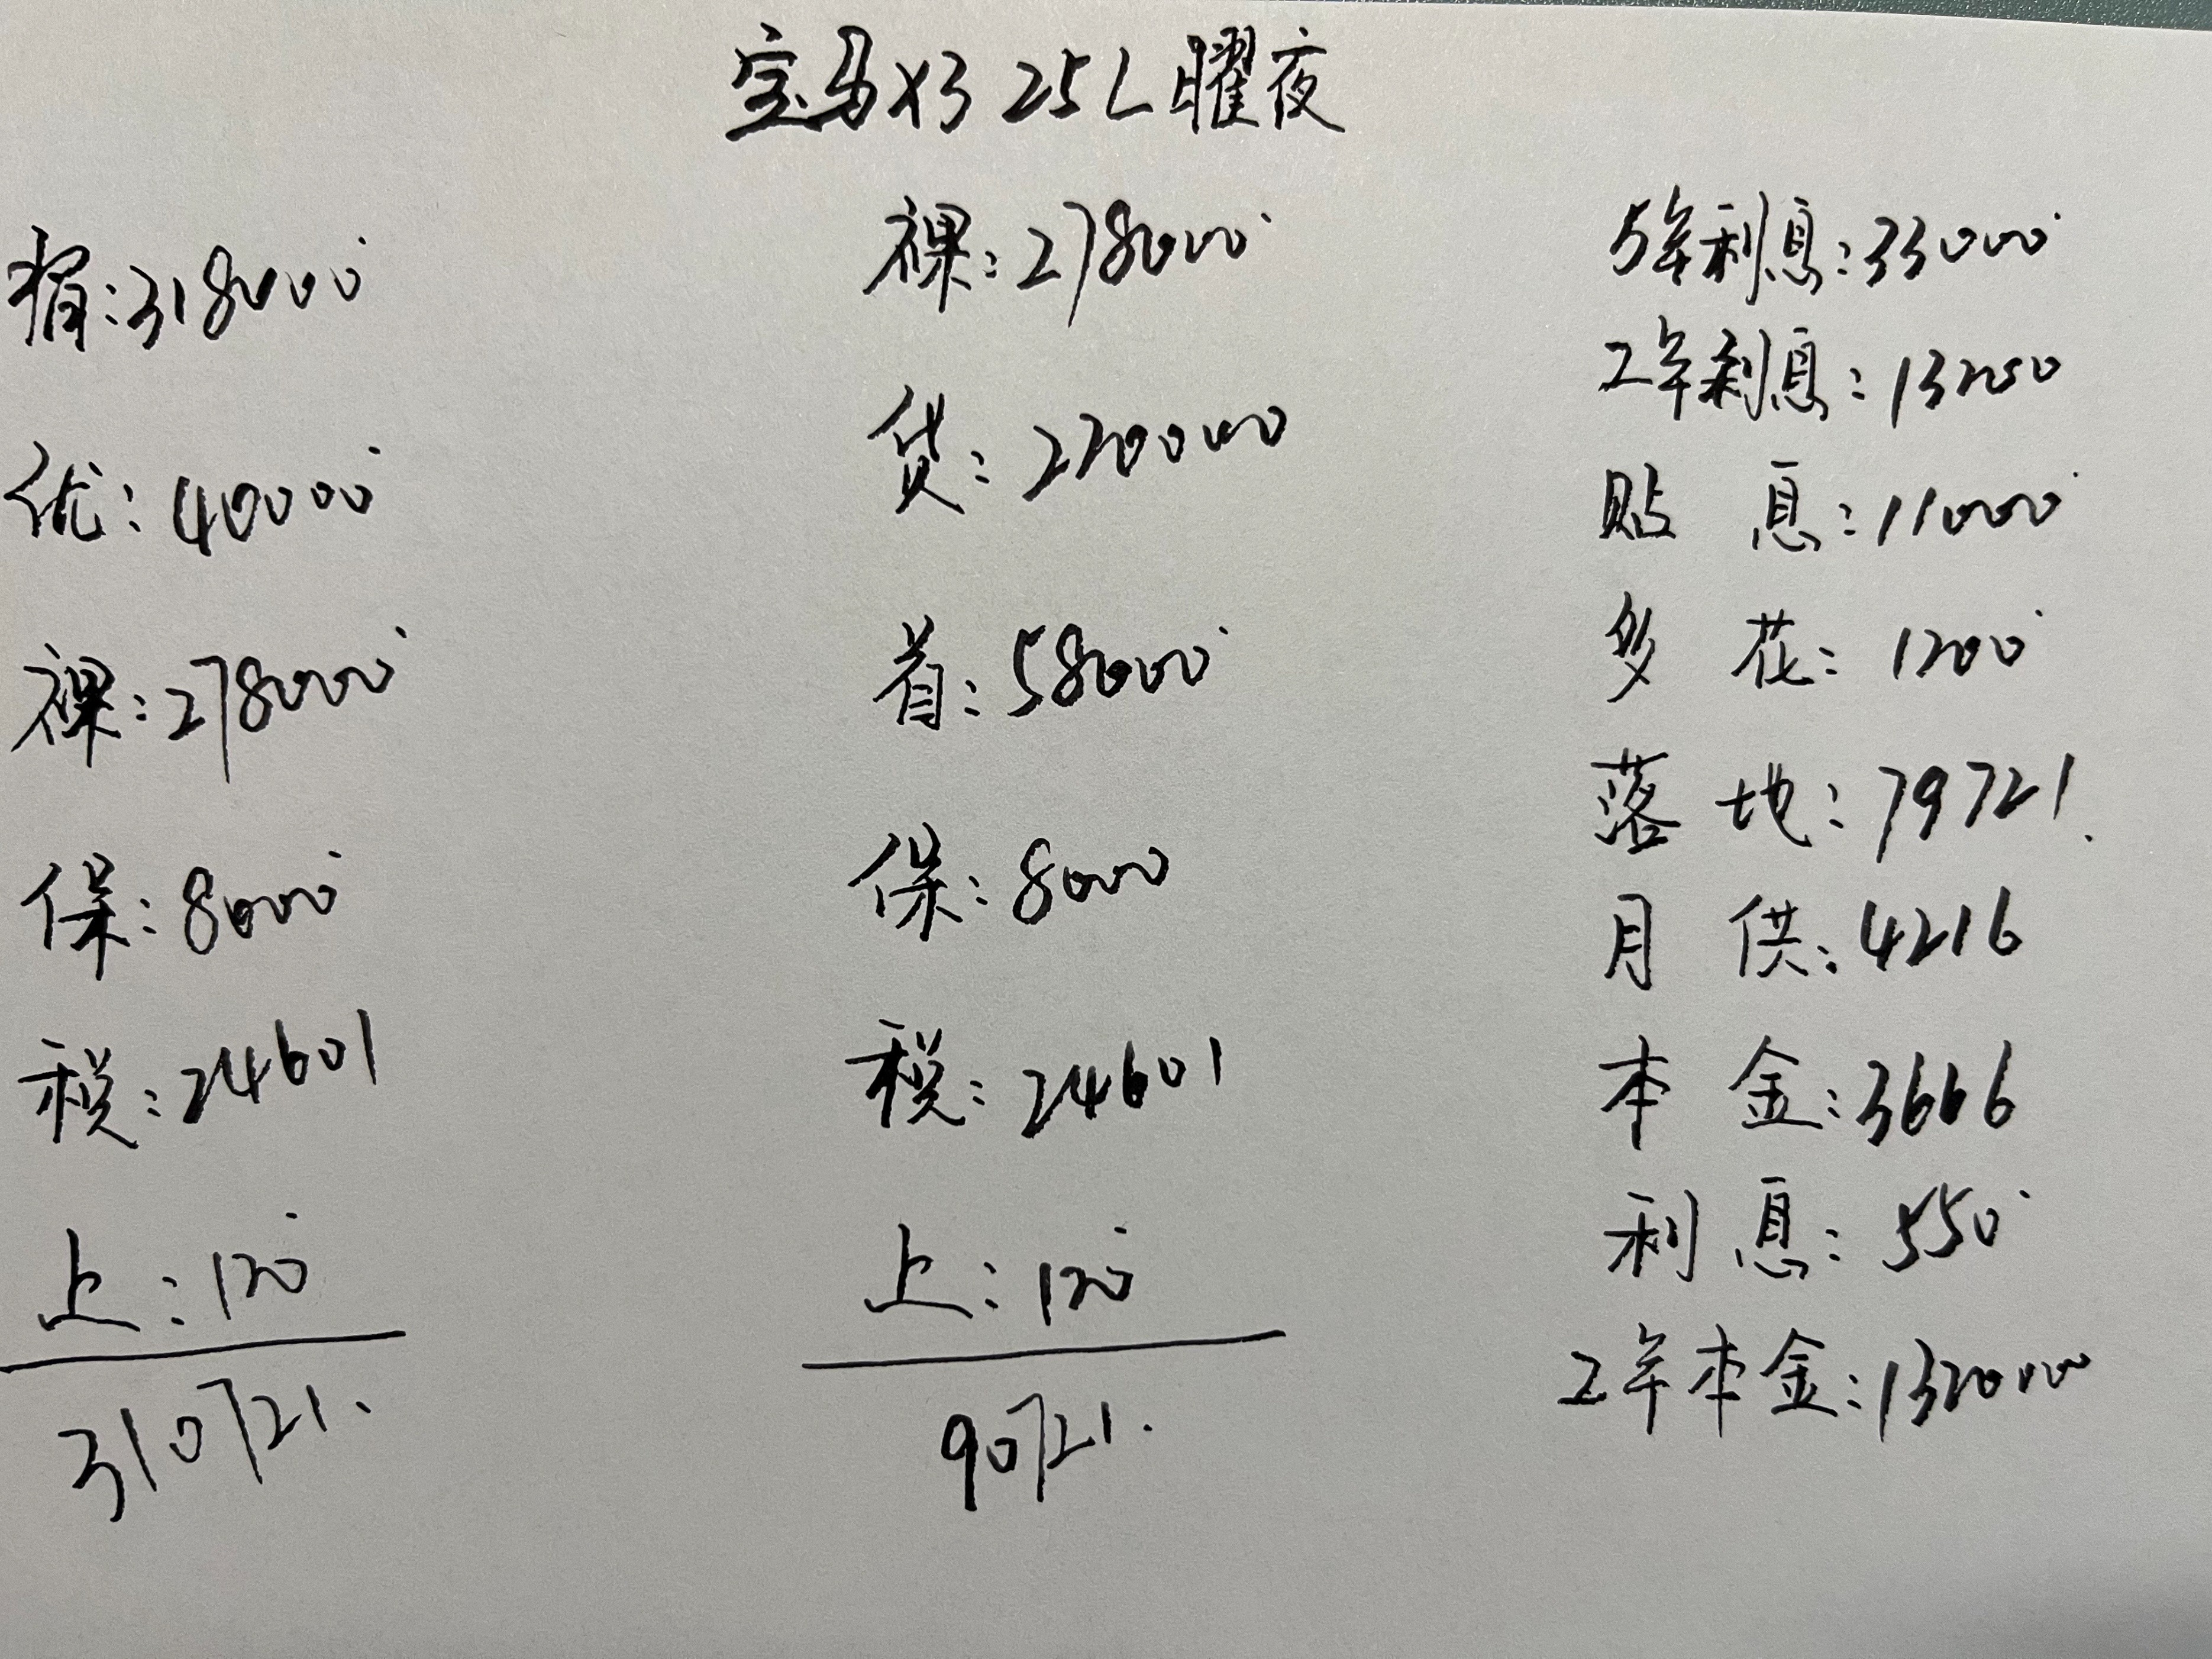 宝马X3 25L曜夜
指:318000
优:40000
裸:278000
保:8000
税:24601
上:120
310721.
裸:278000
贷:220000
首:58000
保:8000
税:24601
上:120
90721.
5年利息:33000
2年利息:13200
贴息:11000
多花:1200
落地:79721.
月供:4216
本金:3666
利息:550
2年本金:132000